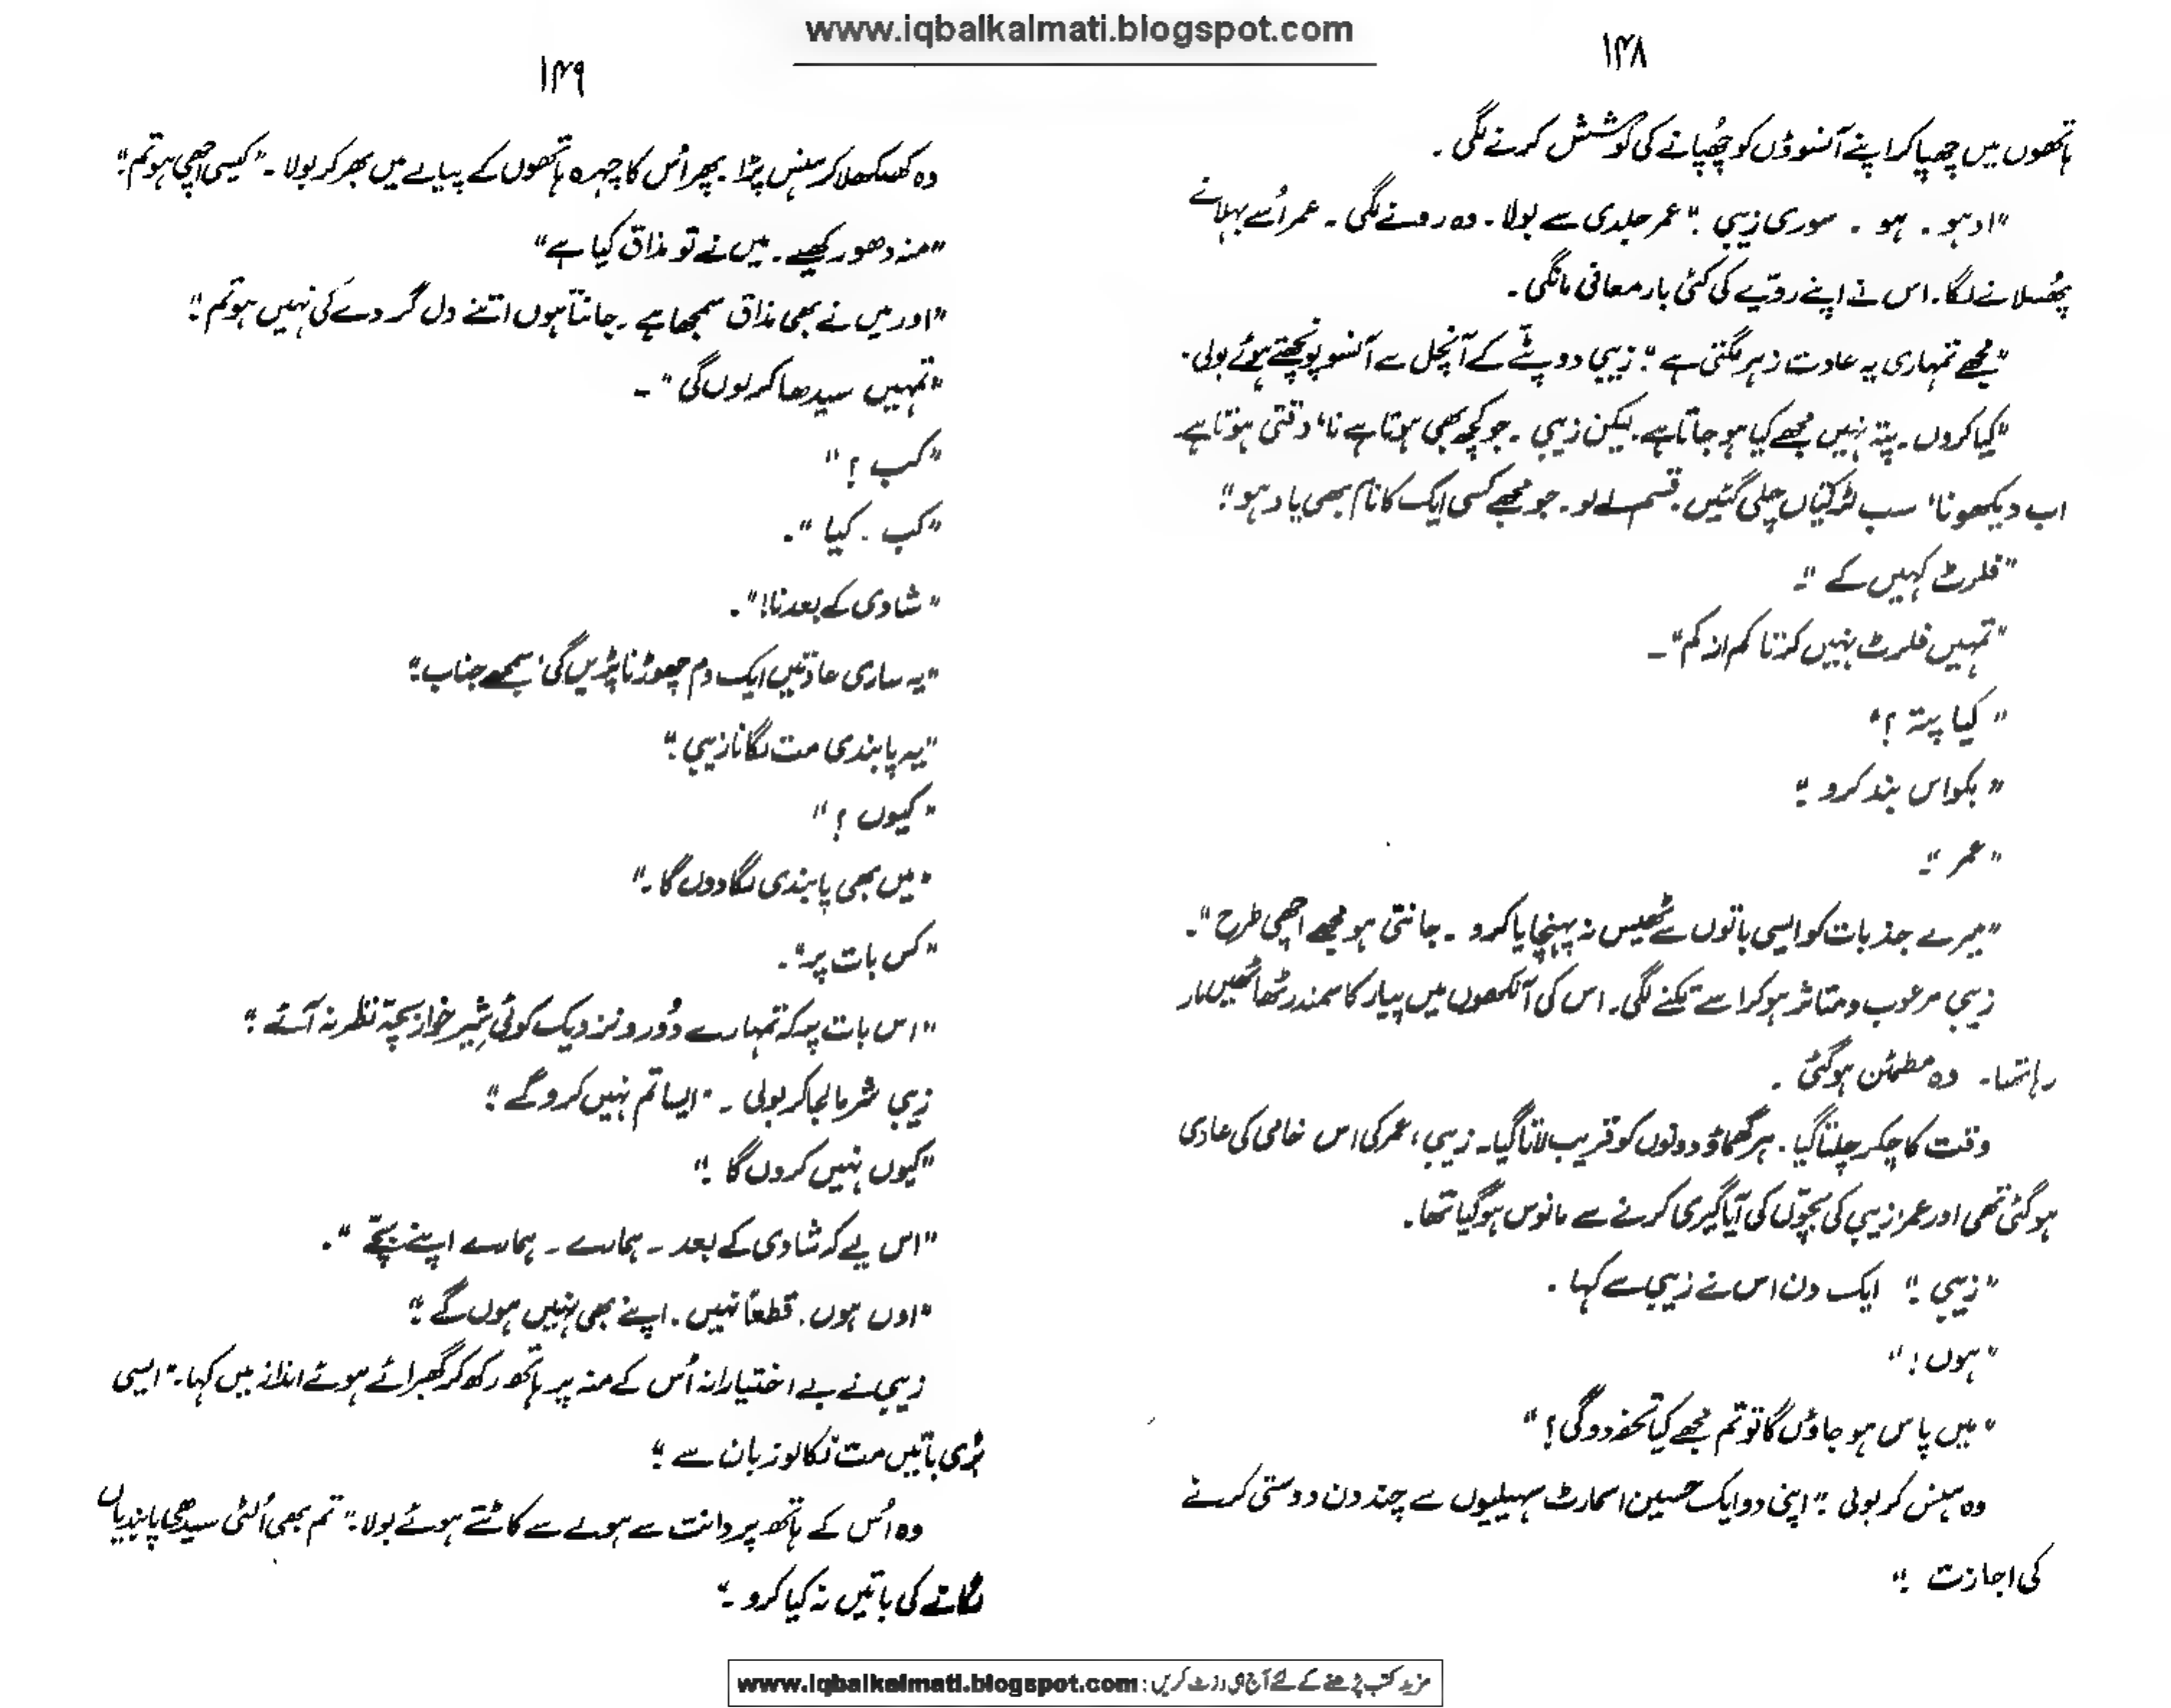 www.iqbalkalmati.blogspot.com
۱۴۸
ہاتھوں میں چھپا کر اپنے آنسوؤں کو چُھپانے کی کوشش کرنے لگی۔
"اوہو۔ ہو۔ سوری زیبی۔" عمر جلدی سے بولا۔ وہ رونے لگی۔ عمر اُسے بہلانے
پھُسلانے لگا۔ اس نے اپنے رویّے کی کئی بار معافی مانگی۔
"مجھے تمہاری یہ عادت زہر لگتی ہے"۔ زیبی دوپٹے کے آنچل سے آنسو پونچھتے ہوئے بولی۔
"کیا کروں۔ پتہ نہیں مجھے کیا ہو جاتا ہے۔ لیکن زیبی۔ جو کچھ بھی ہوتا ہے نا، وقتی ہوتا ہے
اب دیکھو نا، سب لڑکیاں چلی گئیں۔ قسم لے لو۔ جو مجھے کسی ایک کا نام بھی یاد ہو"۔
"فلرٹ کہیں کے"۔
"تمہیں فلرٹ نہیں کرتا کم از کم"۔
"کیا پتہ؟"
"بکواس بند کرو"۔
"عمر"۔
"میرے جذبات کو ایسی باتوں سے ٹھیس نہ پہنچایا کرو۔ جانتی ہو مجھے اچھی طرح"۔
زیبی مرعوب و متاثر ہو کر اسے تکنے لگی۔ اس کی آنکھوں میں پیار کا سمندر ٹھاٹھیں مار
رہا تھا۔ وہ مطمئن ہو گئی۔
وقت کا چکر چلتا گیا۔ ہر گھماؤ دونوں کو قریب لاتا گیا۔ زیبی، عمر کی اس خامی کی عادی
ہو گئی تھی اور عمر زیبی کی بچّوں کی آیا گیری کرنے سے مانوس ہو گیا تھا۔
"زیبی۔" ایک دن اس نے زیبی سے کہا۔
"ہوں!"
"میں پاس ہو جاؤں گا تو تم مجھے کیا تحفہ دو گی؟"
وہ ہنس کر بولی۔ "اپنی دو ایک حسین اسمارٹ سہیلیوں سے چند دن دوستی کرنے
کی اجازت۔"
۱۴۹
وہ کھلکھلا کر ہنس پڑا۔ پھر اُس کا چہرہ ہاتھوں کے پیالے میں بھر کر بولا۔ "کیسی اچھی ہو تم"۔
"منہ دھو رکھیے۔ میں نے تو مذاق کیا ہے"
"اور میں نے بھی مذاق سمجھا ہے۔ جانتا ہوں اتنے دل گردے کی نہیں ہو تم"۔
"تمہیں سیدھا کر لوں گی"۔
"کب؟"
"کب۔ کیا"۔
"شادی کے بعد نا!"۔
"یہ ساری عادتیں ایک دم چھوڑنا پڑیں گی۔ سمجھے جناب"۔
"یہ پابندی مت لگانا زیبی۔"
"کیوں؟"
"میں بھی پابندی لگا دوں گا۔"
"کس بات پر"۔
"اس بات پر کہ تمہارے دُور و نزدیک کوئی شِیر خوار بچّہ نظر نہ آئے"۔
زیبی شرما لجا کر بولی۔ "ایسا تم نہیں کرو گے"۔
"کیوں نہیں کروں گا۔"
"اس لیے کہ شادی کے بعد۔ ہمارے۔ ہمارے اپنے بچّے"۔
"اوں ہوں۔ قطعاً نہیں۔ اپنے بھی نہیں ہوں گے"۔
زیبی نے بے اختیارانہ اُس کے منہ پر ہاتھ رکھ کر گھبرائے ہوئے انداز میں کہا۔ "ایسی
بُری باتیں مت نکالو زبان سے"۔
وہ اُس کے ہاتھ پر دانت سے ہولے سے کاٹتے ہوئے بولا۔ "تم بھی اُلٹی سیدھی پابندیاں
لگانے کی باتیں نہ کیا کرو۔"
مزید کتب پڑھنے کے لئے آج ہی وزٹ کریں: www.iqbalkalmati.blogspot.com